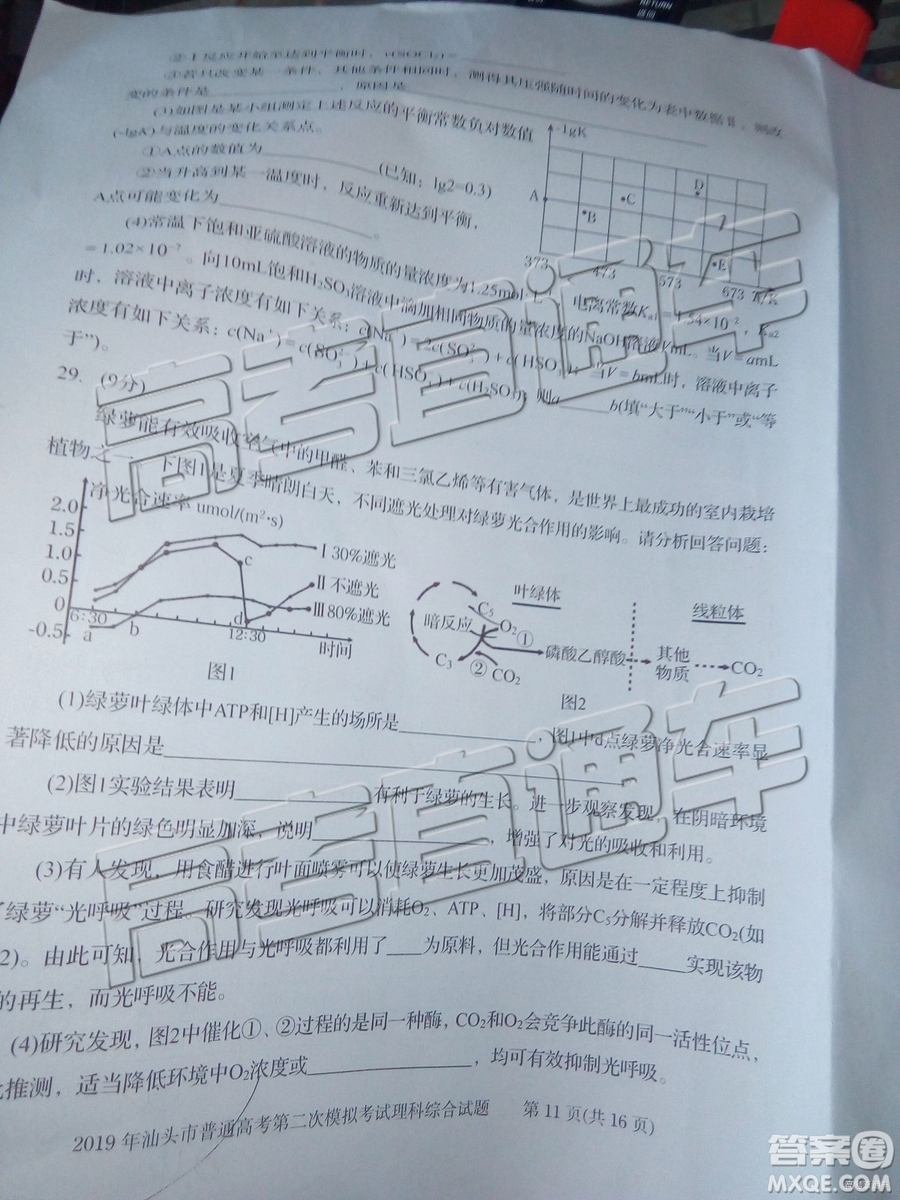 RETURN
返回
②上反应开始至达到平衡时，v(SOCl₂)=
③若只改变某一条件，其他条件相同时，测得其压强随时间的变化为表中数据Ⅱ，则改
变的条件是 ，原因是
(3)如图是某小组测定上述反应的平衡常数负对数值
(-lgK)与温度的变化关系点。
①A点的数值为 (已知：lg2=0.3)
②当升高到某一温度时，反应重新达到平衡，
A点可能变化为 。
-lgK
A
B
C
D
E
373 473 573 673 T/K
(4)常温下饱和亚硫酸溶液的物质的量浓度为1.25mol 电离常数Ka1=1.54×10⁻²，Ka2
=1.02×10⁻⁷。向10mL饱和H₂SO₃溶液中滴加相同物质的量浓度的NaOH溶液VmL。当V=amL
时，溶液中离子浓度有如下关系：c(Na⁺)=2c(SO₃²⁻)+c(HSO₃⁻)；当V=bmL时，溶液中离子
浓度有如下关系：c(Na⁺)=c(SO₃²⁻)+c(HSO₃⁻)+c(H₂SO₃)；则a b(填“大于”“小于”或“等
于”)。
29. (9分)
绿萝能有效吸收空气中的甲醛、苯和三氯乙烯等有害气体，是世界上最成功的室内栽培
植物之一。下图1是夏季晴朗白天，不同遮光处理对绿萝光合作用的影响。请分析回答问题：
净光合速率 umol/(m²•s)
2.0
1.5
1.0
0.5
0
-0.5
6:30
12:30
a
b
c
d
Ⅰ 30%遮光
Ⅱ 不遮光
Ⅲ 80%遮光
时间
图1
叶绿体
线粒体
C₅
O₂
①
暗反应
磷酸乙醇酸
其他
物质
CO₂
C₃
②
CO₂
图2
(1)绿萝叶绿体中ATP和[H]产生的场所是 ，图1中d点绿萝净光合速率显
著降低的原因是
(2)图1实验结果表明 有利于绿萝的生长。进一步观察发现，在阴暗环境
中绿萝叶片的绿色明显加深，说明 ，增强了对光的吸收和利用。
(3)有人发现，用食醋进行叶面喷雾可以使绿萝生长更加茂盛，原因是在一定程度上抑制
了绿萝“光呼吸”过程。研究发现光呼吸可以消耗O₂、ATP、[H]，将部分C₅分解并释放CO₂(如
2)。由此可知，光合作用与光呼吸都利用了 为原料，但光合作用能通过 实现该物
的再生，而光呼吸不能。
(4)研究发现，图2中催化①、②过程的是同一种酶，CO₂和O₂会竞争此酶的同一活性位点，
推测，适当降低环境中O₂浓度或 ，均可有效抑制光呼吸。
2019 年汕头市普通高考第二次模拟考试理科综合试题 第 11 页(共 16 页)
高考直通车
高考直通车
答案圈
MXQE.COM